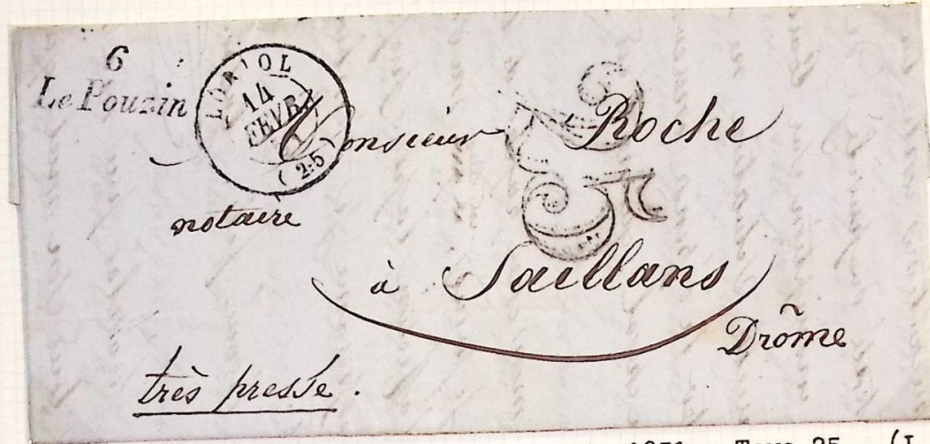 6
Le Pouzin
LORIOL
14
FEVR
(25)
Monsieur Roche
notaire
25
à Saillans
Drôme
très pressé.
Taxe 25 (L